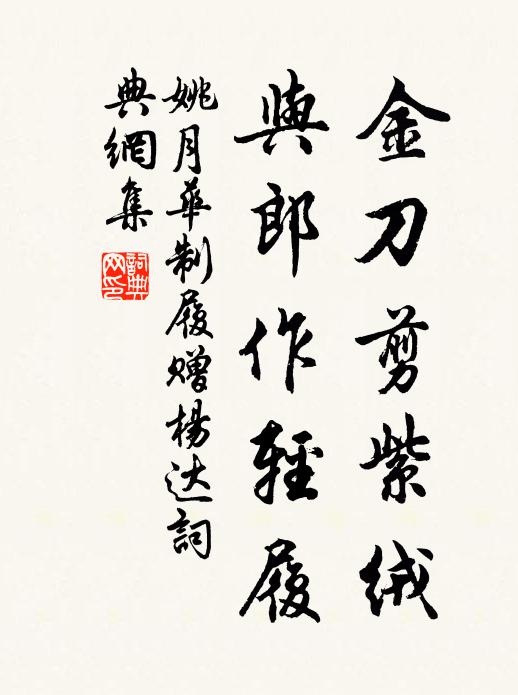 金刀剪紫絨
與郎作輕履
姚月華制履贈楊达詞
典網集
詞典網印